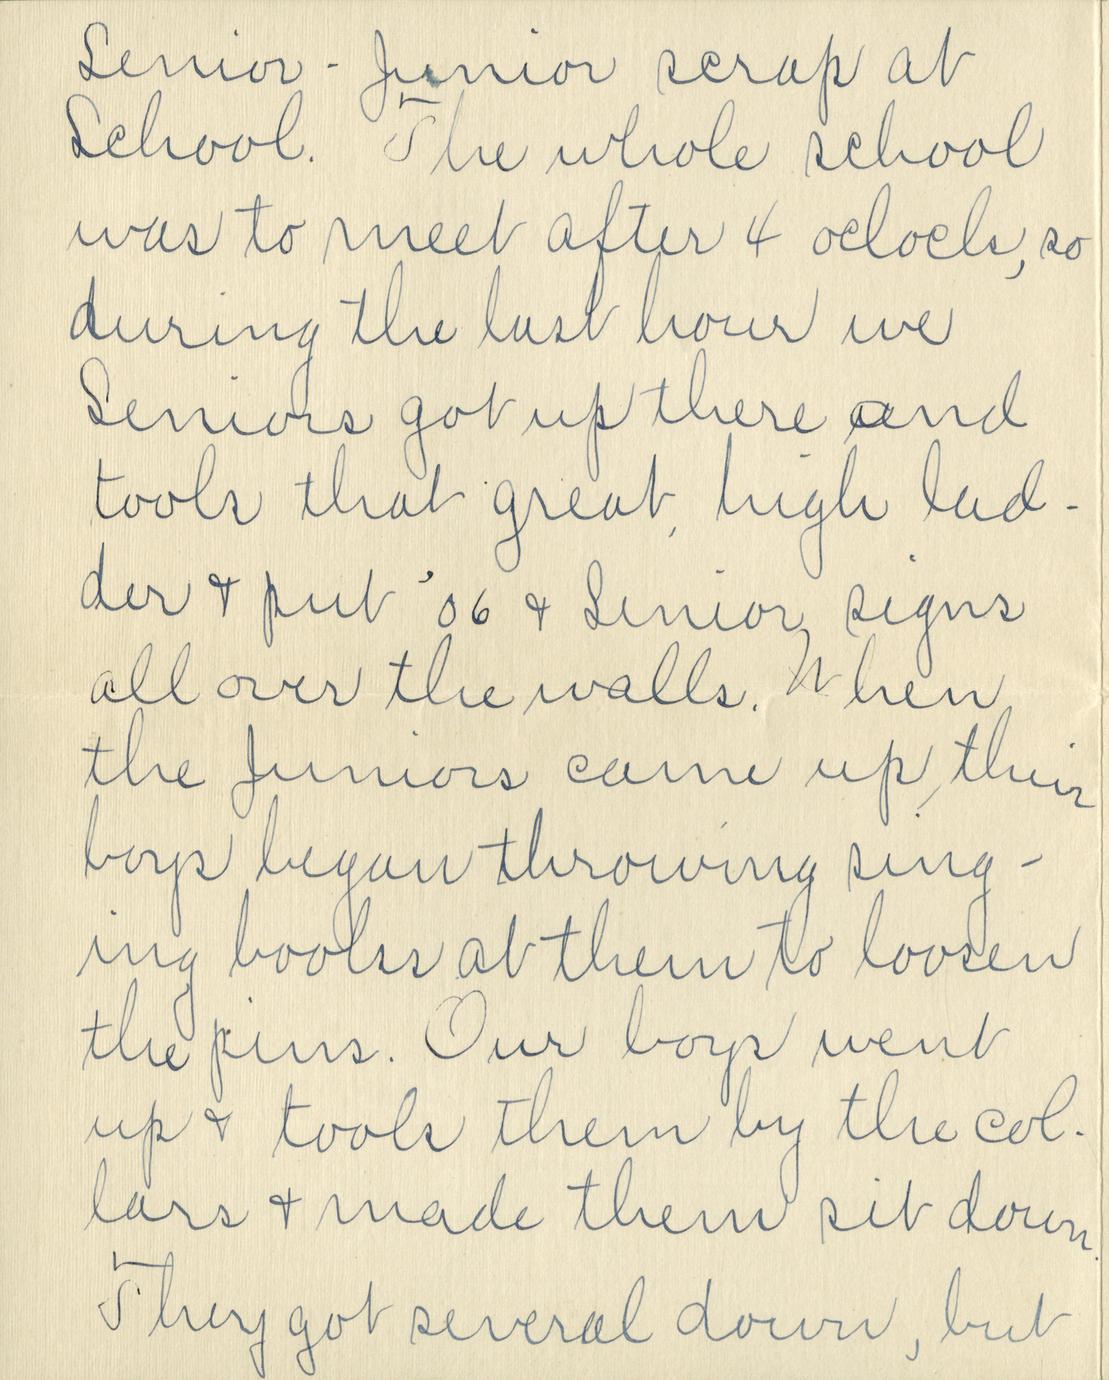 Senior - Junior scrap at
School. The whole school
was to meet after 4 oclock, so
during the last hour we
Seniors got up there and
took that great, high lad-
der & put '06 & Senior signs
all over the walls. When
the Juniors came up, their
boys began throwing sing-
ing books at them to loosen
the pins. Our boys went
up & took them by the col-
lars & made them sit down.
They got several down, but